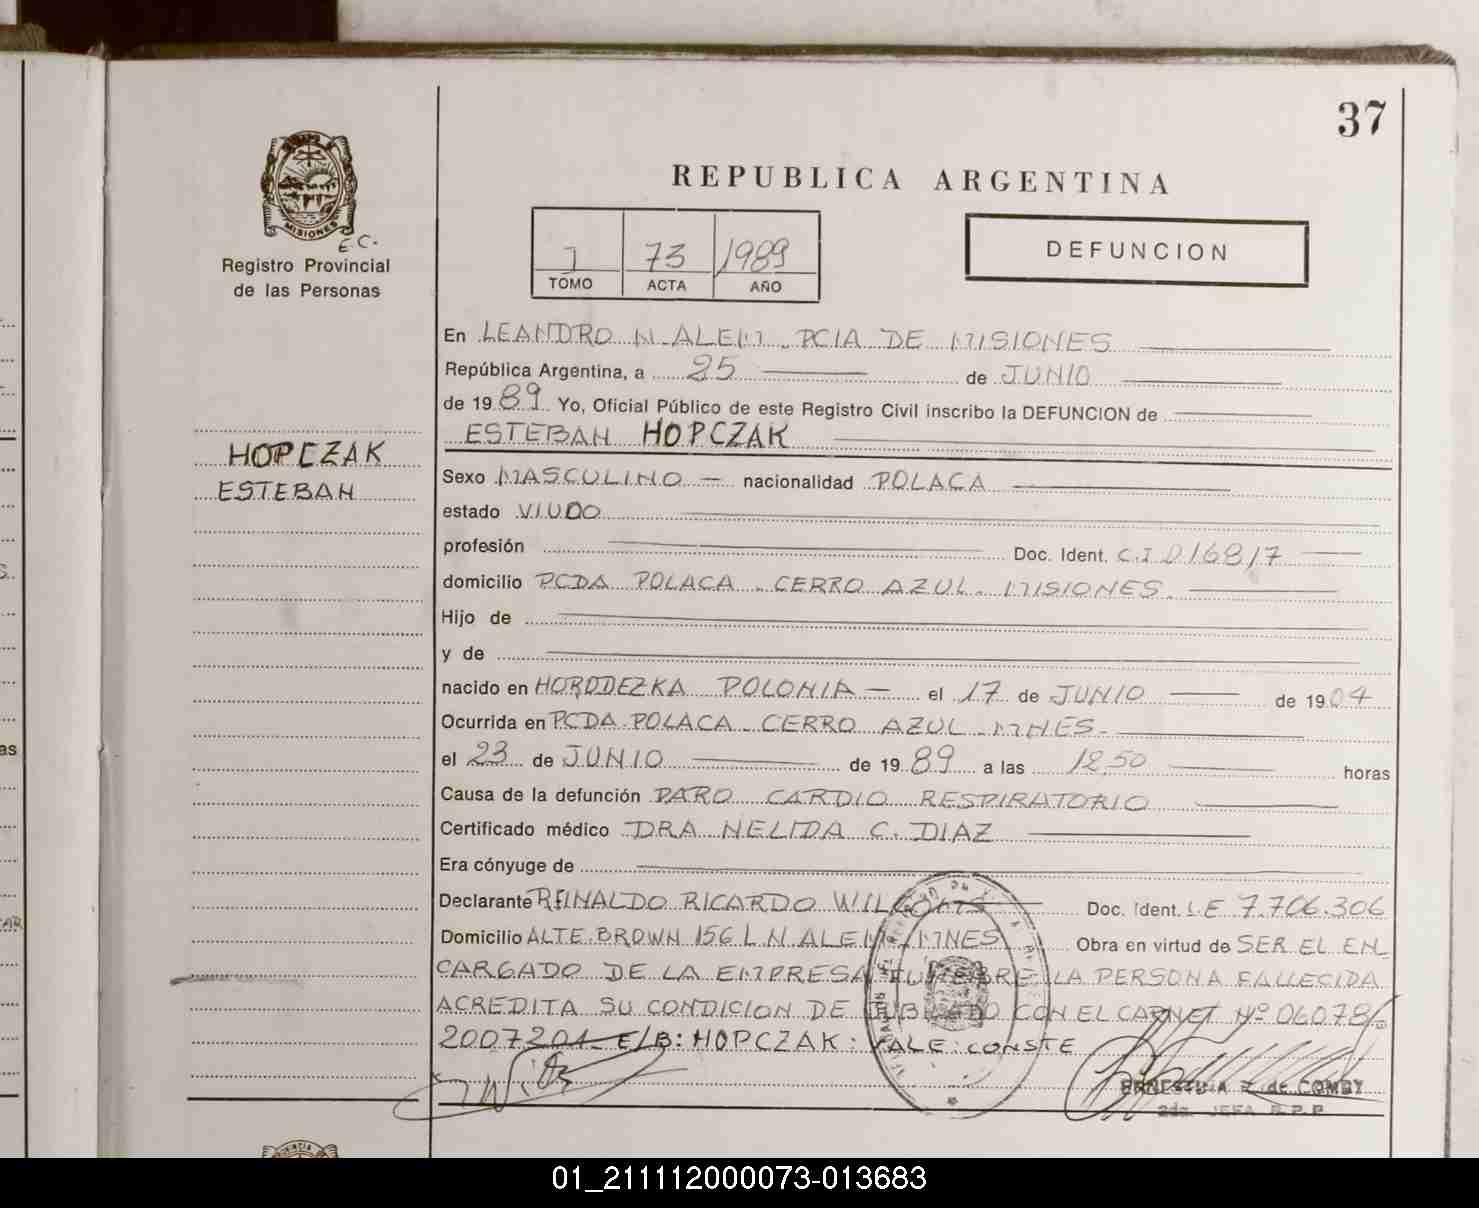 37
REPUBLICA ARGENTINA
MISIONES
E.C.
Registro Provincial
de las Personas
1 73 1989
TOMO ACTA AÑO
DEFUNCION
En LEANDRO N. ALEM - PCIA DE MISIONES
República Argentina, a 25 de JUNIO
de 1989 Yo, Oficial Público de este Registro Civil inscribo la DEFUNCION de
ESTEBAN HOPCZAK
HOPCZAK
ESTEBAN
Sexo MASCULINO - nacionalidad POLACA
estado VIUDO
profesión Doc. Ident. C.I
domicilio PCDA POLACA - CERRO AZUL - MISIONES.
Hijo de
y de
nacido en HORODEZKA POLONIA - el 17 de JUNIO de 1904
Ocurrida en PCDA POLACA - CERRO AZUL - MNES -
el 23 de JUNIO de 1989 a las 12,50 horas
Causa de la defunción PARO CARDIO RESPIRATORIO
Certificado médico DRA NELIDA C. DIAZ
Era cónyuge de
Declarante REINALDO RICARDO Doc. Ident. L.E 7.706.306
Domicilio ALTE BROWN 156 L N ALEM - MNES Obra en virtud de SER EL EN
CARGADO DE LA EMPRESA FUNEBRE LA PERSONA FALLECIDA
ACREDITA SU CONDICION DE JUBILADO CON EL CARNET Nº 060786
2007201 - E/B: HOPCZAK: VALE: CONSTE
ERNESTINA Z. de COMBY
2da. JEFA R.P.P.
01_211112000073-013683